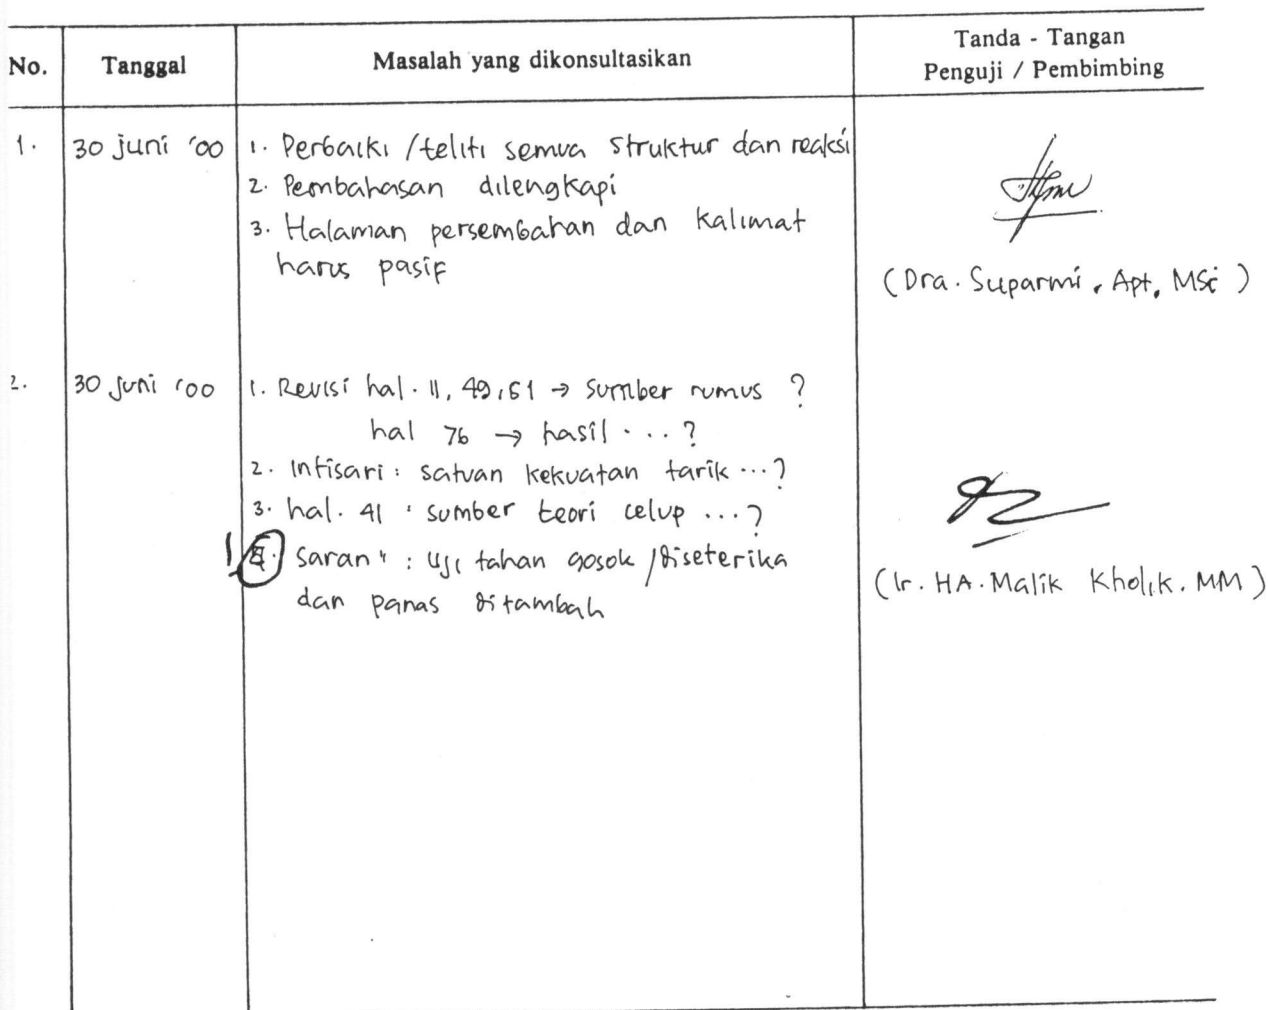 No. Tanggal Masalah yang dikonsultasikan Tanda - Tangan
Penguji / Pembimbing
1. 30 juni '00 1. Perbaiki / teliti semua struktur dan reaksi
2. Pembahasan dilengkapi
3. Halaman persembahan dan kalimat
harus pasif
(Dra. Suparmi, Apt, MSi)
2. 30 juni '00 1. Revisi hal. 11, 49, 61 → sumber rumus ?
hal 76 → hasil ... ?
2. Intisari : satuan kekuatan tarik ... ?
3. hal. 41 : sumber teori celup ... ?
! 4. Saran" : Uji tahan gosok / diseterika
dan panas ditambah
(Ir. HA. Malik Kholik. MM)